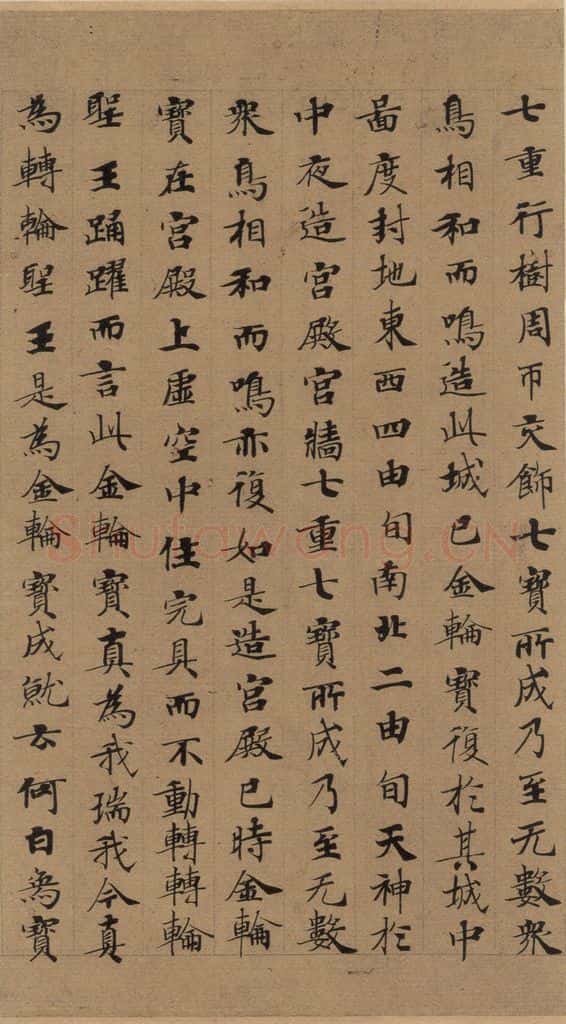 七重行樹周帀交飾七寶所成乃至无數衆
鳥相和而鳴造此城已金輪寶復於其城中
啚度封地東西四由旬南北二由旬天神於
中夜造宮殿宮牆七重七寶所成乃至无數
衆鳥相和而鳴亦復如是造宮殿已時金輪
寶在宮殿上虛空中住完具而不動轉轉輪
聖王踊躍而言此金輪寶真為我瑞我今真
為轉輪聖王是為金輪寶成就云何白象寶
Shufawang.CN